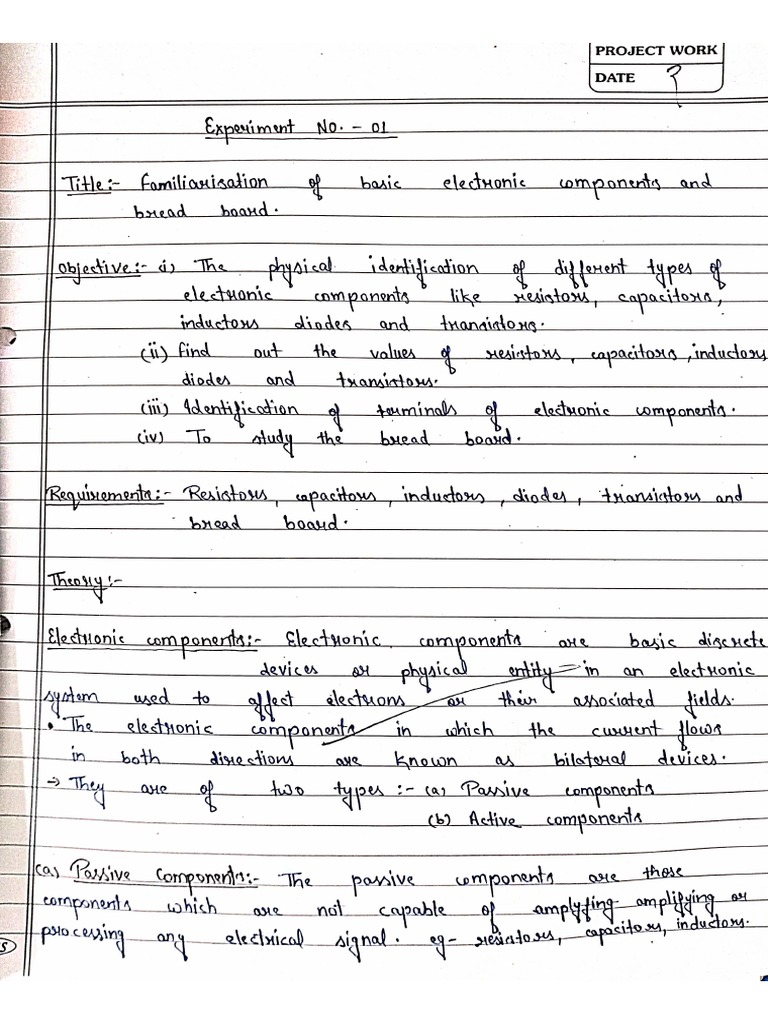 PROJECT WORK
DATE
Experiment No. - 01
Title:- Familiarisation of basic electronic components and
bread board.
Objective:- i) The physical identification of different types of
electronic components like resistors, capacitors,
inductors diodes and transistors.
(ii) Find out the values of resistors, capacitors, inductors
diodes and transistors.
(iii) Identification of terminals of electronic components.
(iv) To study the bread board.
Requirements:- Resistors, capacitors, inductors, diodes, transistors and
bread board.
Theory:-
Electronic components:- Electronic components are basic discrete
devices or physical entity in an electronic
system used to affect electrons or their associated fields.
• The electronic components in which the current flows
in both directions are known as bilateral devices.
→ They are of two types :- (a) Passive components
(b) Active components
(a) Passive Components:- The passive components are those
components which are not capable of amplyfing amplifying or
processing any electrical signal. eg- resistors, capacitors, inductors.